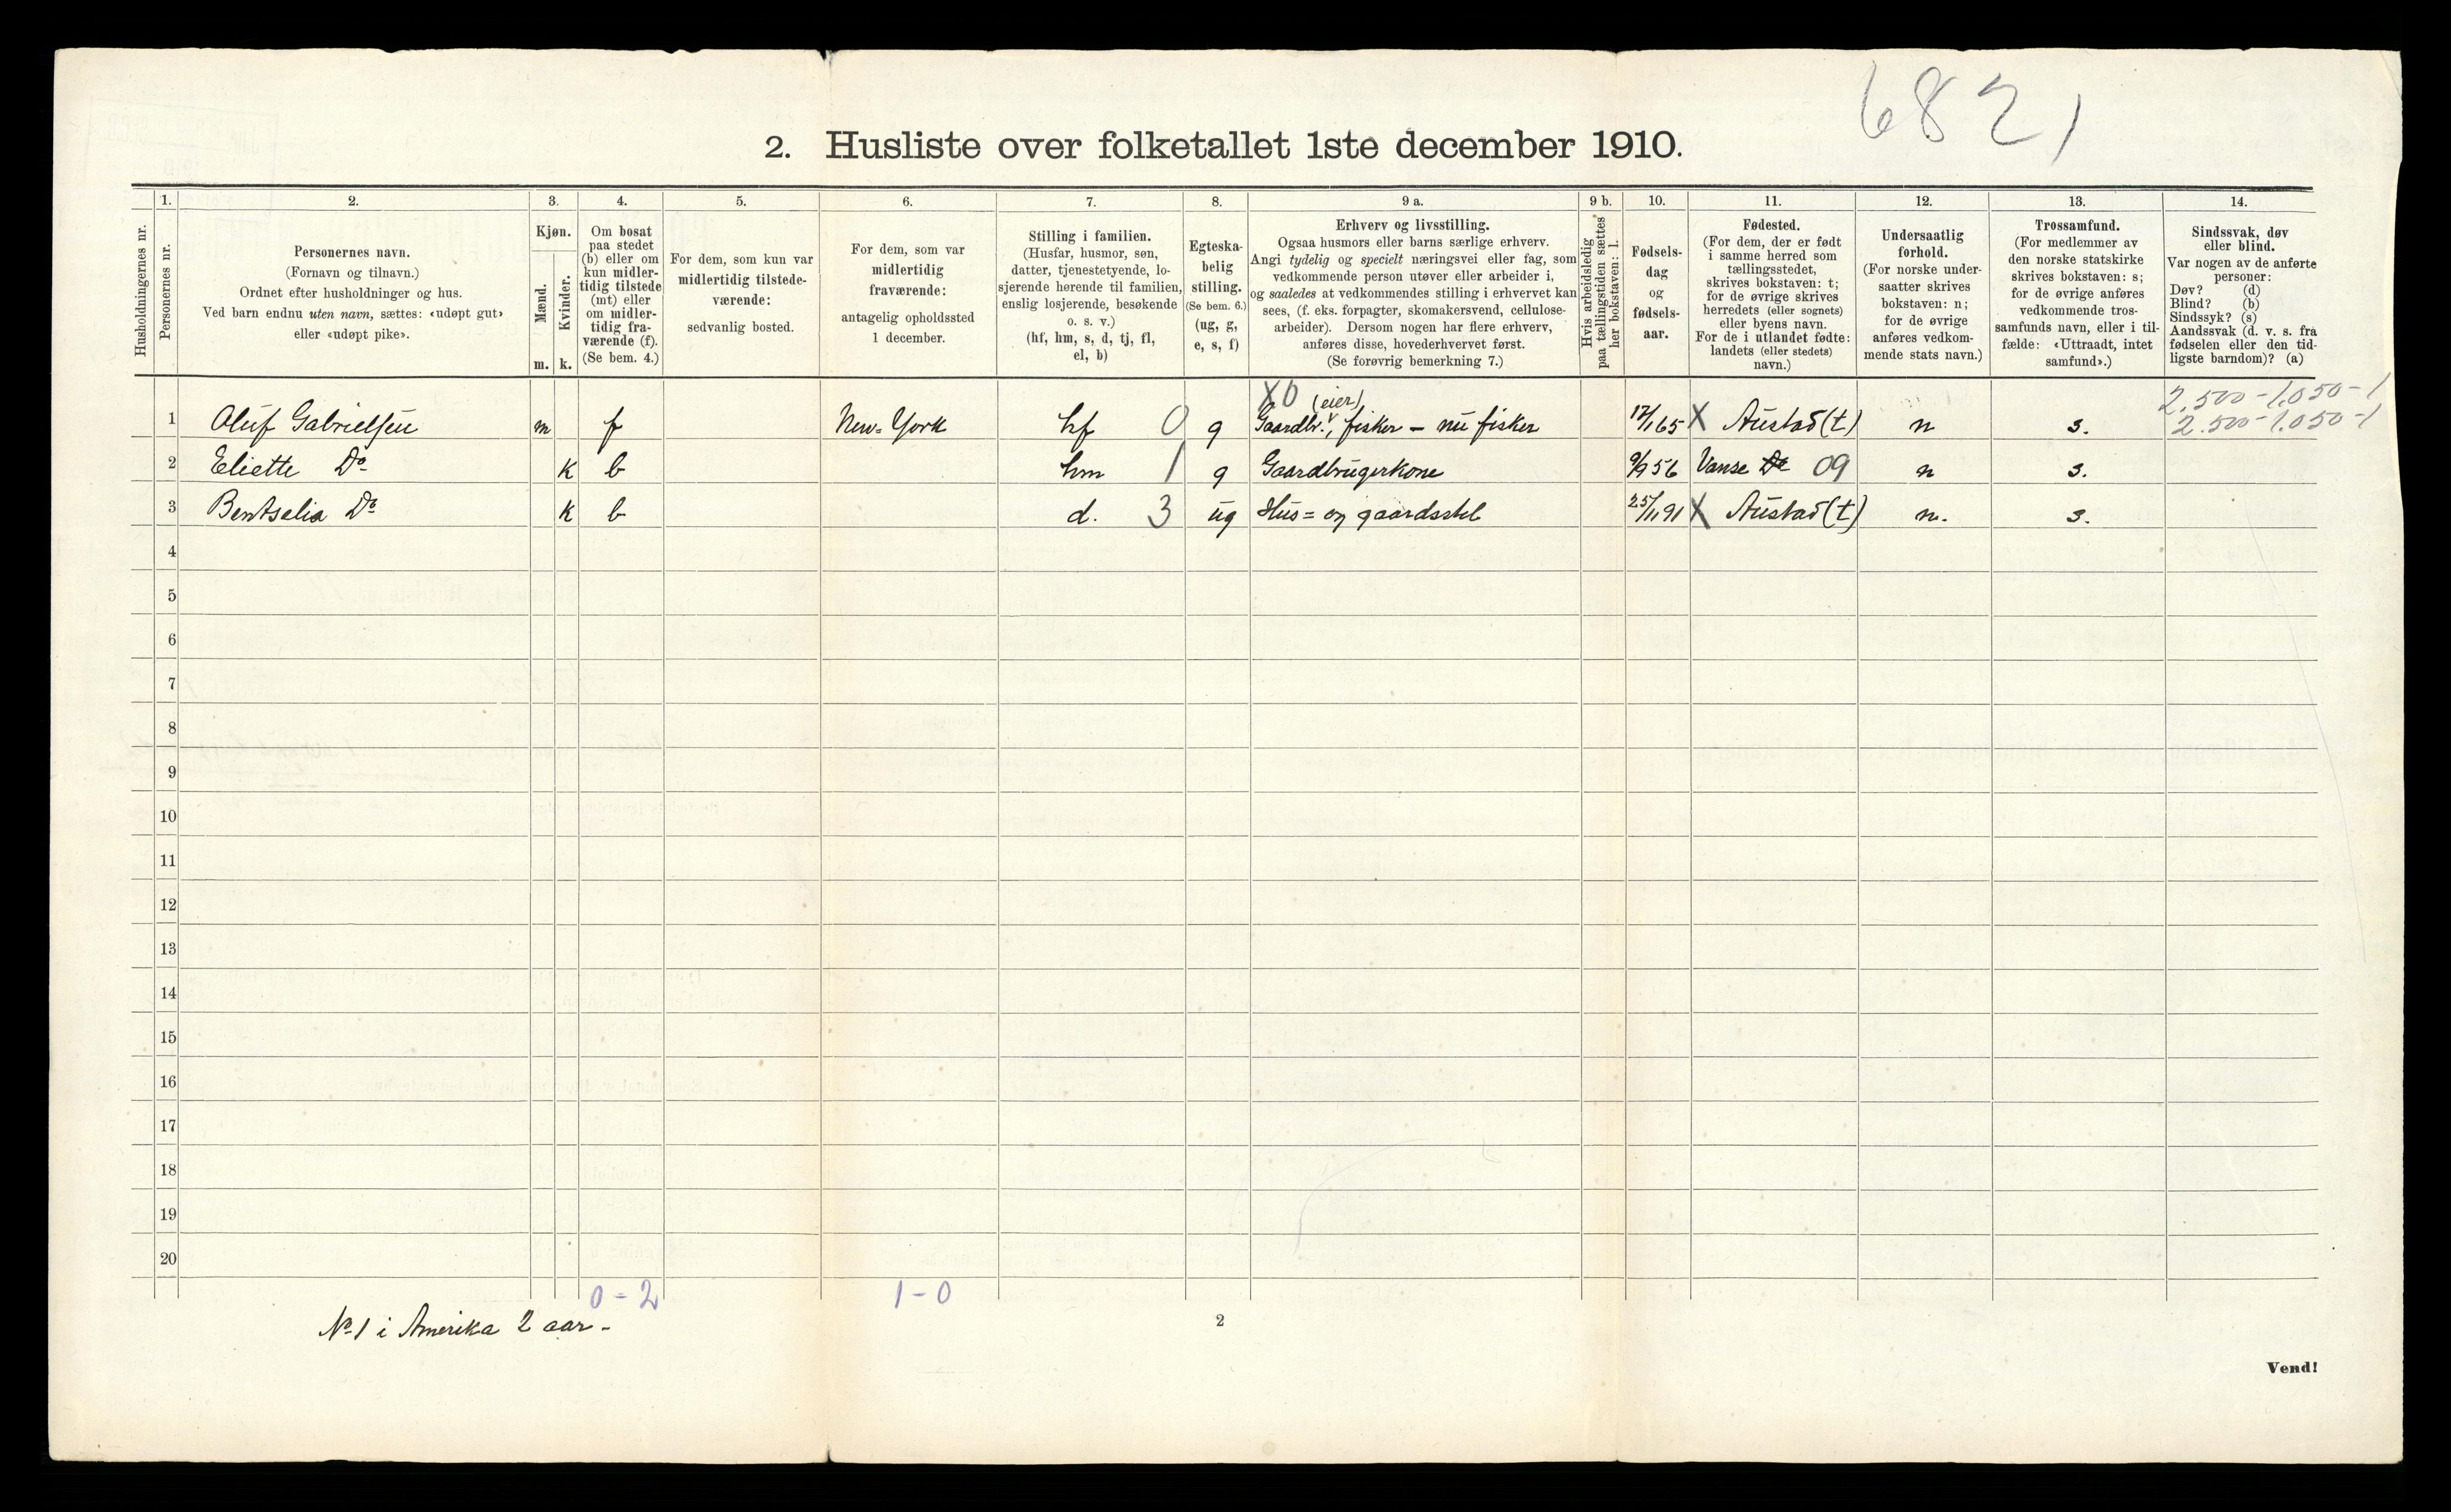 6821
2. Husliste over folketallet 1ste december 1910.
1. 2. 3. 4. 5. 6. 7. 8. 9 a. 9 b. 10. 11. 12. 13. 14.
Husholdningernes nr.
Personernes nr.
Personernes navn.
(Fornavn og tilnavn.)
Ordnet efter husholdninger og hus.
Ved barn endnu uten navn, sættes: «udøpt gut»
eller «udøpt pike».
Kjøn.
Mænd.
Kvinder.
m. k.
Om bosat
paa stedet
(b) eller om
kun midler-
tidig tilstede
(mt) eller
om midler-
tidig fra-
værende (f).
(Se bem. 4.)
For dem, som kun var
midlertidig tilstede-
værende:
sedvanlig bosted.
For dem, som var
midlertidig
fraværende:
antagelig opholdssted
1 december.
Stilling i familien.
(Husfar, husmor, søn,
datter, tjenestetyende, lo-
sjerende hørende til familien,
enslig losjerende, besøkende
o. s. v.)
(hf, hm, s, d, tj, fl,
el, b)
Egteska-
belig
stilling.
(Se bem. 6.)
(ug, g,
e, s, f)
Erhverv og livsstilling.
Ogsaa husmors eller barns særlige erhverv.
Angi tydelig og specielt næringsvei eller fag, som
vedkommende person utøver eller arbeider i,
og saaledes at vedkommendes stilling i erhvervet kan
sees, (f. eks. forpagter, skomakersvend, cellulose-
arbeider). Dersom nogen har flere erhverv,
anføres disse, hovederhvervet først.
(Se forøvrig bemerkning 7.)
Hvis arbeidsledig
paa tællingstiden sættes
her bokstaven: l.
Fødsels-
dag
og
fødsels-
aar.
Fødested.
(For dem, der er født
i samme herred som
tællingsstedet,
skrives bokstaven: t;
for de øvrige skrives
herredets (eller sognets)
eller byens navn.
For de i utlandet fødte:
landets (eller stedets)
navn.)
Undersaatlig
forhold.
(For norske under-
saatter skrives
bokstaven: n;
for de øvrige
anføres vedkom-
mende stats navn.)
Trossamfund.
(For medlemmer av
den norske statskirke
skrives bokstaven: s;
for de øvrige anføres
vedkommende tros-
samfunds navn, eller i til-
fælde: «Uttraadt, intet
samfund».)
Sindssvak, døv
eller blind.
Var nogen av de anførte
personer:
Døv? (d)
Blind? (b)
Sindssyk? (s)
Aandssvak (d. v. s. fra
fødselen eller den tid-
ligste barndom)? (a)
X0 (eier) 2.500-1.050-1
1 Oluf Gabrielsen m f New-York hf 0 g Gaardbr., fisker - nu fisker 17/1 65 X Austad (t) n s. 2.500-1.050-1
2 Eliette Do k b hm 1 g Gaardbrugerkone 9/9 56 Vanse Do 09 n s.
3 Bentselia Do k b d. 3 ug Hus= og gaardsstel 25/11 91 X Austad (t) n. s.
4
5
6
7
8
9
10
11
12
13
14
15
16
17
18
19
20
0-2 1-0
No 1 i Amerika 2 aar -
2
Vend!